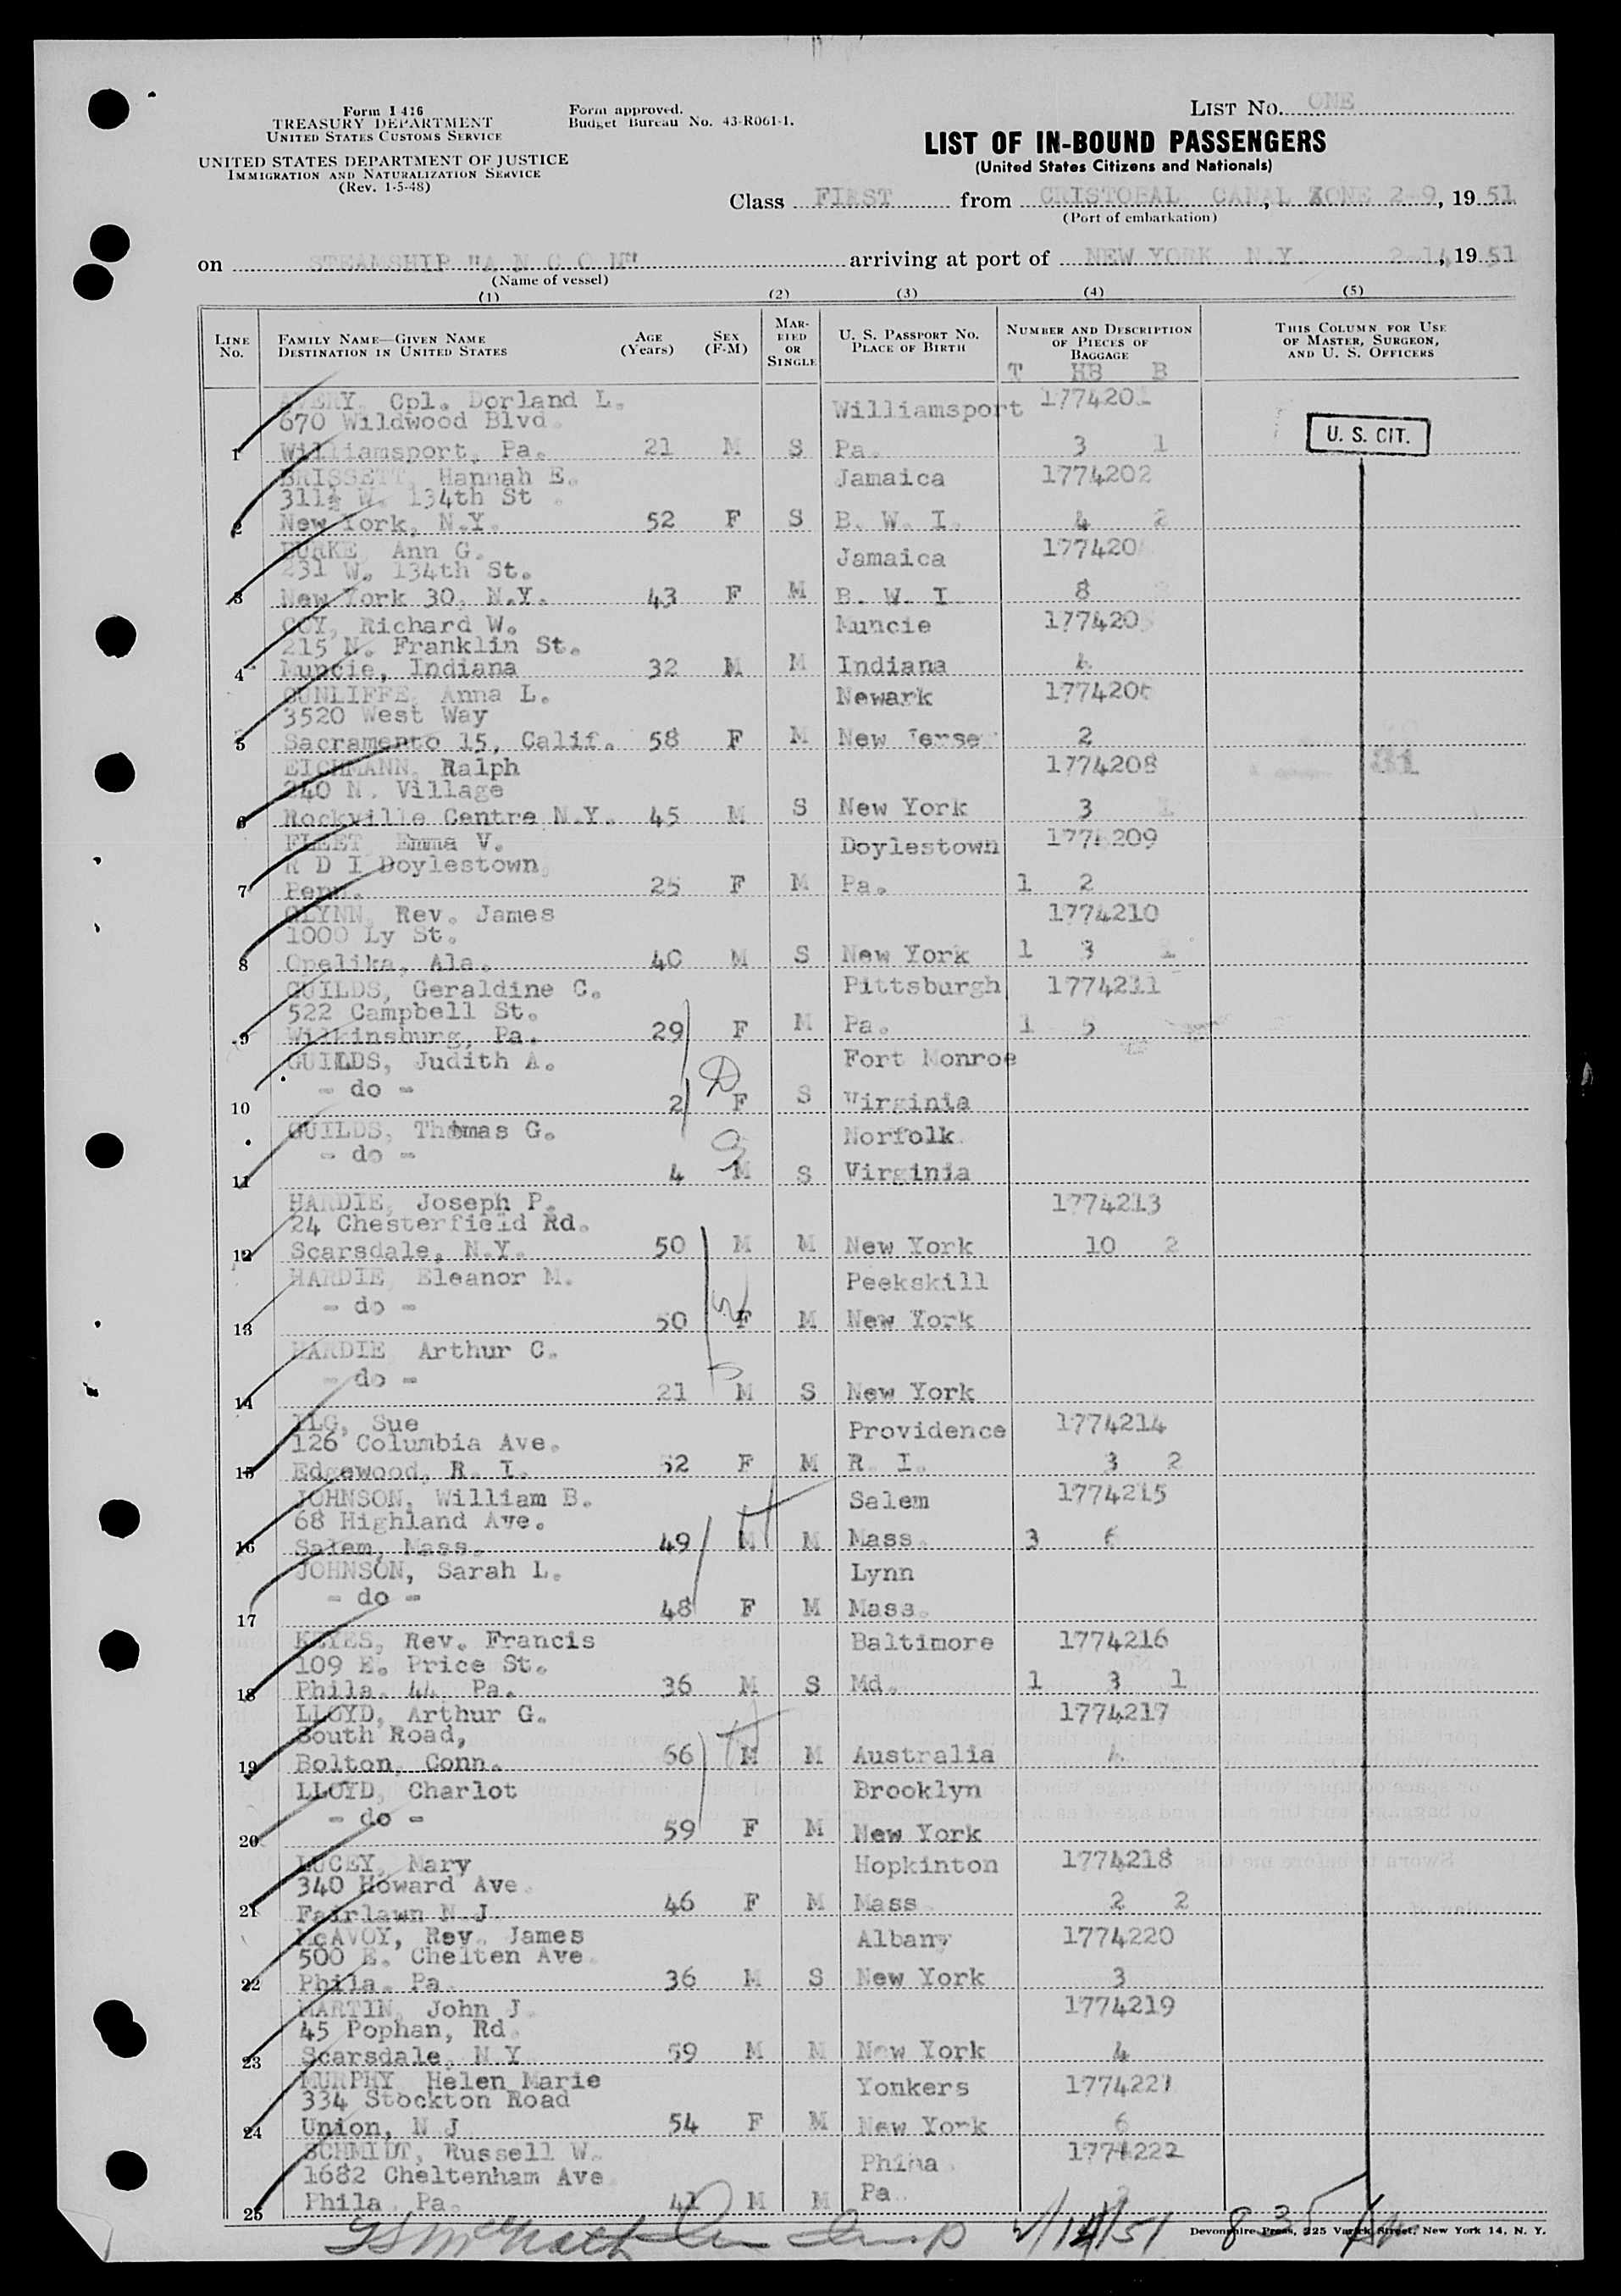 Form I 416
TREASURY DEPARTMENT
UNITED STATES CUSTOMS SERVICE
UNITED STATES DEPARTMENT OF JUSTICE
IMMIGRATION AND NATURALIZATION SERVICE
(Rev. 1-5-48)
Form approved.
Budget Bureau No. 43-R061-1.
LIST NO. ONE
LIST OF IN-BOUND PASSENGERS
(United States Citizens and Nationals)
Class FIRST from CRISTOBAL CANAL ZONE 2-9, 1951
(Port of embarkation)
on STEAMSHIP "A N C O N" arriving at port of NEW YORK N.Y. 2-14, 1951
(Name of vessel)
(1) (2) (3) (4) (5)
LINE NO.
FAMILY NAME—GIVEN NAME
DESTINATION IN UNITED STATES
AGE (Years)
SEX (F-M)
MARRIED OR SINGLE
U. S. PASSPORT NO.
PLACE OF BIRTH
NUMBER AND DESCRIPTION OF PIECES OF BAGGAGE
T HB B
THIS COLUMN FOR USE OF MASTER, SURGEON, AND U. S. OFFICERS
AVERY, Cpl. Dorland L. Williamsport 1774201
670 Wildwood Blvd.
1 Williamsport, Pa. 21 M S Pa. 3 1
U. S. CIT.
BRISSETT, Hannah E. Jamaica 1774202
311½ W. 134th St.
2 New York, N.Y. 52 F S B. W. I. 4 2
BURKE Ann G. Jamaica 177420
231 W. 134th St.
3 New York 30, N.Y. 43 F M B. W. I. 8
COY, Richard W. Muncie 177420
215 N. Franklin St.
4 Muncie, Indiana 32 M M Indiana 4
CUNLIFFE, Anna L. Newark 1774206
3520 West Way
5 Sacramento 15, Calif. 58 F M New Jersey 2
EICHMANN, Ralph 1774208
240 N. Village
6 Rockville Centre N.Y. 45 M S New York 3 1
FLEET Emma V. Doylestown 1774209
R D I Doylestown,
7 Penn. 25 F M Pa. 1 2
GLYNN, Rev. James 1774210
1000 Ly St.
8 Opelika, Ala. 40 M S New York 1 3 1
GUILDS, Geraldine C. Pittsburgh 1774211
522 Campbell St.
9 Wilkinsburg, Pa. 29 F M Pa. 1 5
GUILDS, Judith A. Fort Monroe
- do -
10 2 F S Virginia
GUILDS, Thomas G. Norfolk
- do -
11 4 M S Virginia
HARDIE, Joseph P. 1774213
24 Chesterfield Rd.
12 Scarsdale, N.Y. 50 M M New York 10 2
HARDIE Eleanor M. Peekskill
- do -
13 50 F M New York
HARDIE Arthur C.
- do -
14 21 M S New York
ILG, Sue Providence 1774214
126 Columbia Ave.
15 Edgewood, R. I. 52 F M R. I. 3 2
JOHNSON, William B. Salem 1774215
68 Highland Ave.
16 Salem, Mass. 49 M M Mass. 3 6
JOHNSON, Sarah L. Lynn
- do -
17 48 F M Mass.
KEYES, Rev. Francis Baltimore 1774216
109 E. Price St.
18 Phila. 44 Pa. 36 M S Md. 1 3 1
LLOYD, Arthur G. 1774217
South Road,
19 Bolton, Conn. 66 M M Australia 4
LLOYD, Charlot Brooklyn
- do -
20 59 F M New York
LUCEY, Mary Hopkinton 1774218
340 Howard Ave.
21 Fairlawn N.J. 46 F M Mass 2 2
McAVOY, Rev. James Albany 1774220
500 E. Chelten Ave.
22 Phila. Pa. 36 M S New York 3
MARTIN, John J. 1774219
45 Pophan, Rd.
23 Scarsdale, N.Y 59 M M New York 4
MURPHY Helen Marie Yonkers 1774221
334 Stockton Road
24 Union, N J 54 F M New York 6
SCHMIDT, Russell W. Phiha 1774222
1682 Cheltenham Ave.
25 Phila. Pa. 41 M M Pa.
2/14/51 835
Devonshire Press, 225 Varick Street, New York 14, N. Y.